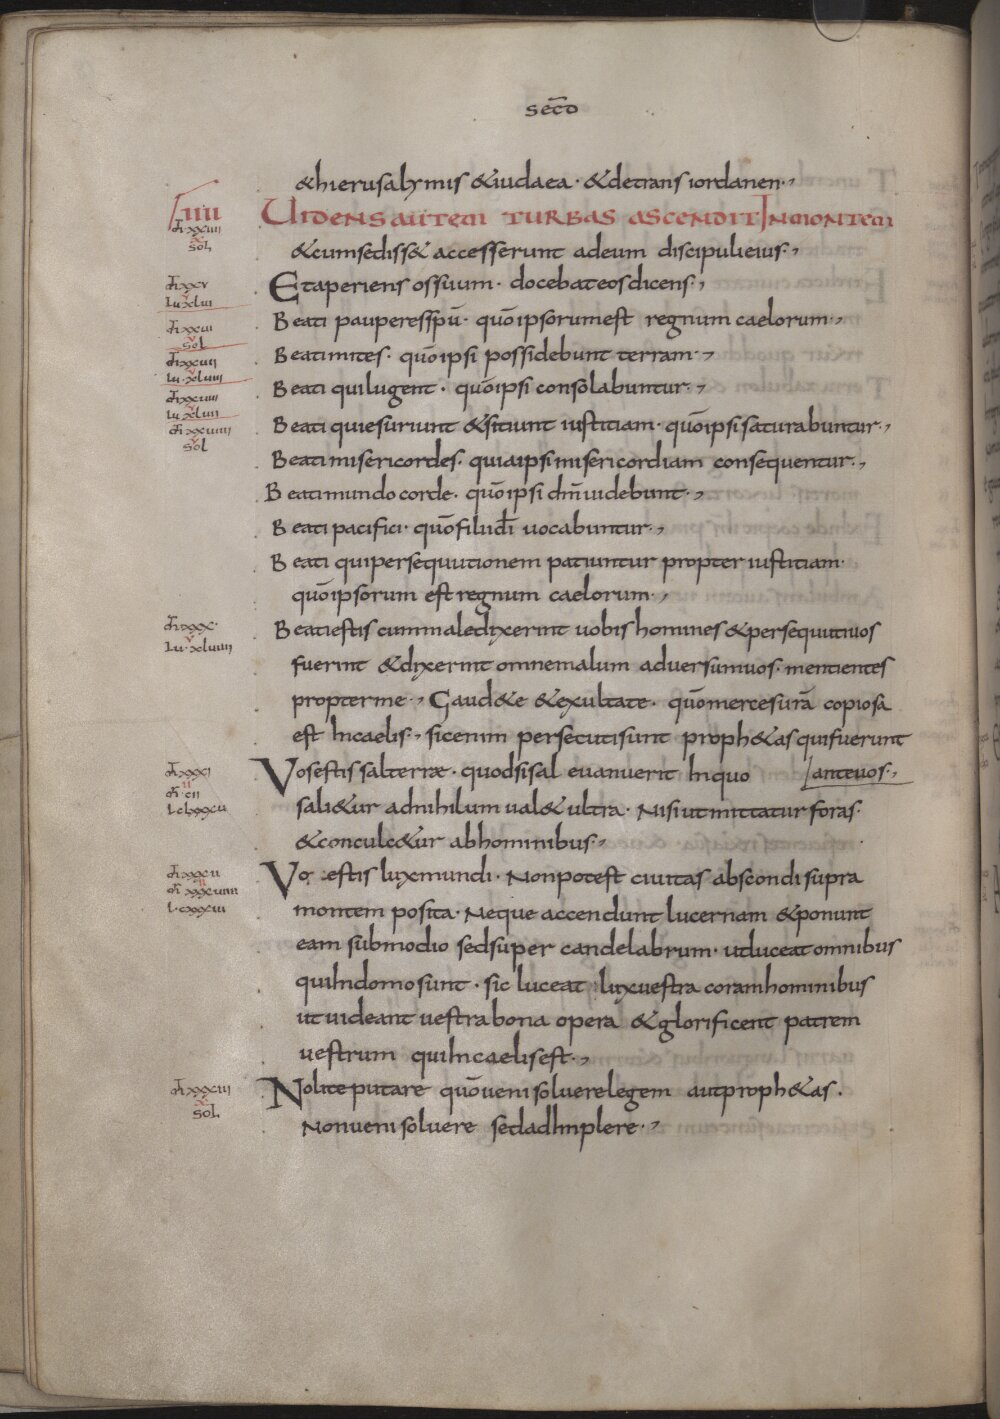 secd̄o
& hierusalymis & iudaea · & detrans iordanen ·,
IIII
UIDENS AUTEM TURBAS ASCENDIT IN MONTEM
sol
& cum sediss& accesserunt adeum discipuli eius ·,
Et aperiens os suum · docebat eos dicens ·,
Beati pauperes spū · quō ipsorum est regnum caelorum ·,
sol
Beati mites · quō ipsi possidebunt terram ·,
Beati qui lugent · quō ipsi consolabuntur ·,
Beati qui esuriunt & sitiunt iustitiam · quō ipsi saturabuntur ·,
sol
Beati misericordes · quia ipsi misericordiam consequentur ·,
Beati mundo corde · quō ipsi dm̄ uidebunt ·,
Beati pacifici · quō filii dī uocabuntur ·,
Beati qui persequutionem patiuntur propter iustitiam ·
quō ipsorum est regnum caelorum ·,
Beati estis cum maledixerint uobis homines & persequuti uos
fuerint & dixerint omne malum aduersum uos · mentientes
propter me ·, Gaud&e & exultate · quō merces urā copiosa
est In caelis ·, sic enim persecuti sunt proph&as qui fuerunt
ante uos ·,
Vos estis sal terrae · quod si sal euanuerit In quo
sali&ur adnihilum ual& ultra · Nisi ut mittatur foras ·
& conculc&ur ab hominibus ·,
Vos estis lux mundi · Non potest ciuitas abscondi supra
montem posita · Neque accendunt lucernam & ponunt
eam sub modio sed super candelabrum · ut luceat omnibus
qui In domo sunt · sic luceat lux uestra coram hominibus
ut uideant uestra bona opera & glorificent patrem
uestrum qui In caelis est ·,
Nolite putare quō ueni soluere legem aut proph&as ·
sol
Non ueni soluere sed adImplere ·,